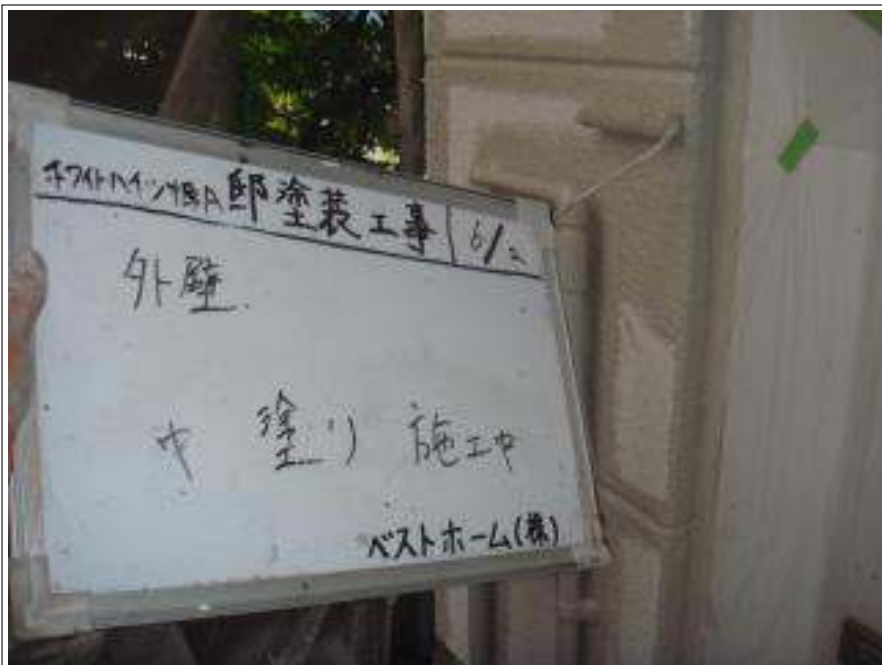 ホワイトハイツ 邸塗装工事 6/2
外壁
中塗り 施工中
ベストホーム(株)